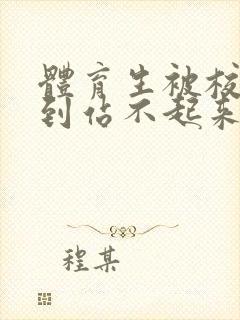 體育生被
到佔不起
程某